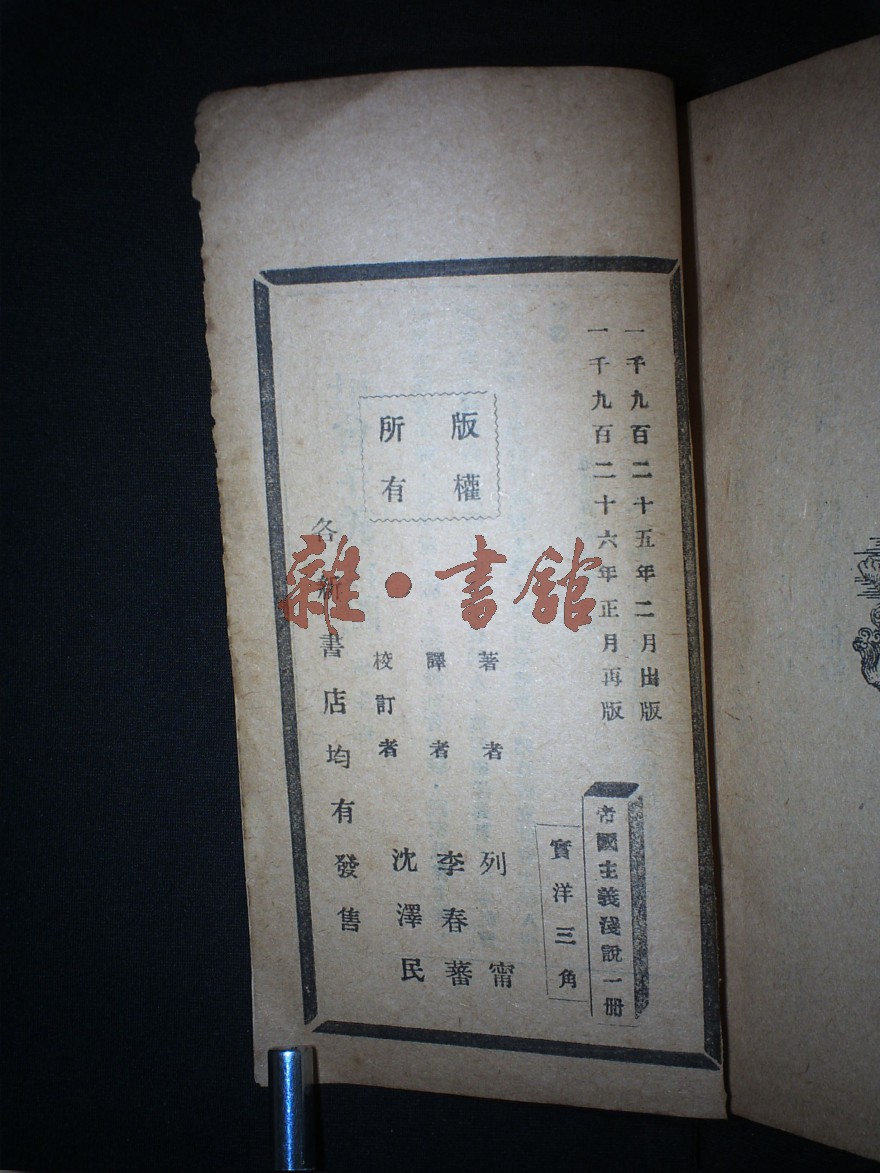 一千九百二十五年二月出版
一千九百二十六年正月再版
帝國主義淺說一冊
實洋三角
版權
所有
著者 列甯
譯者 李春蕃
校訂者 沈澤民
各新書店均有發售
雜·書館